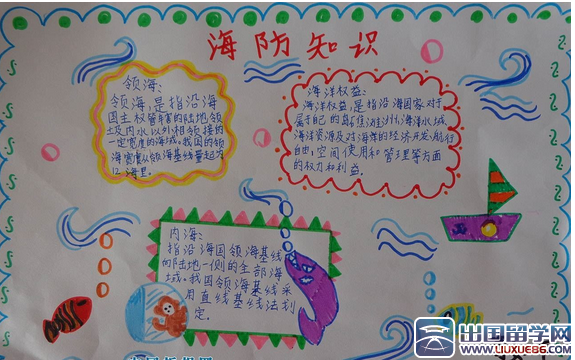 海防知识
领海:
领海,是指沿海
国主权管辖的陆地领
土及内水以外和邻接的
一定宽度的海域。我国的领
海宽度从领海基线量起为
12海里。
海洋权益:
海洋权益,是指沿海国家对于
属于自己的岛屿
海洋水域,
海洋资源及对海洋的经济开发、航行
自由,空间使用和管理等方面
的权力和利益。
内海:
指沿海国领海基线
向陆地一侧的全部海
域。我国领海基线采
用直线基线法划
定。
出国留学网
www.liuxue86.com